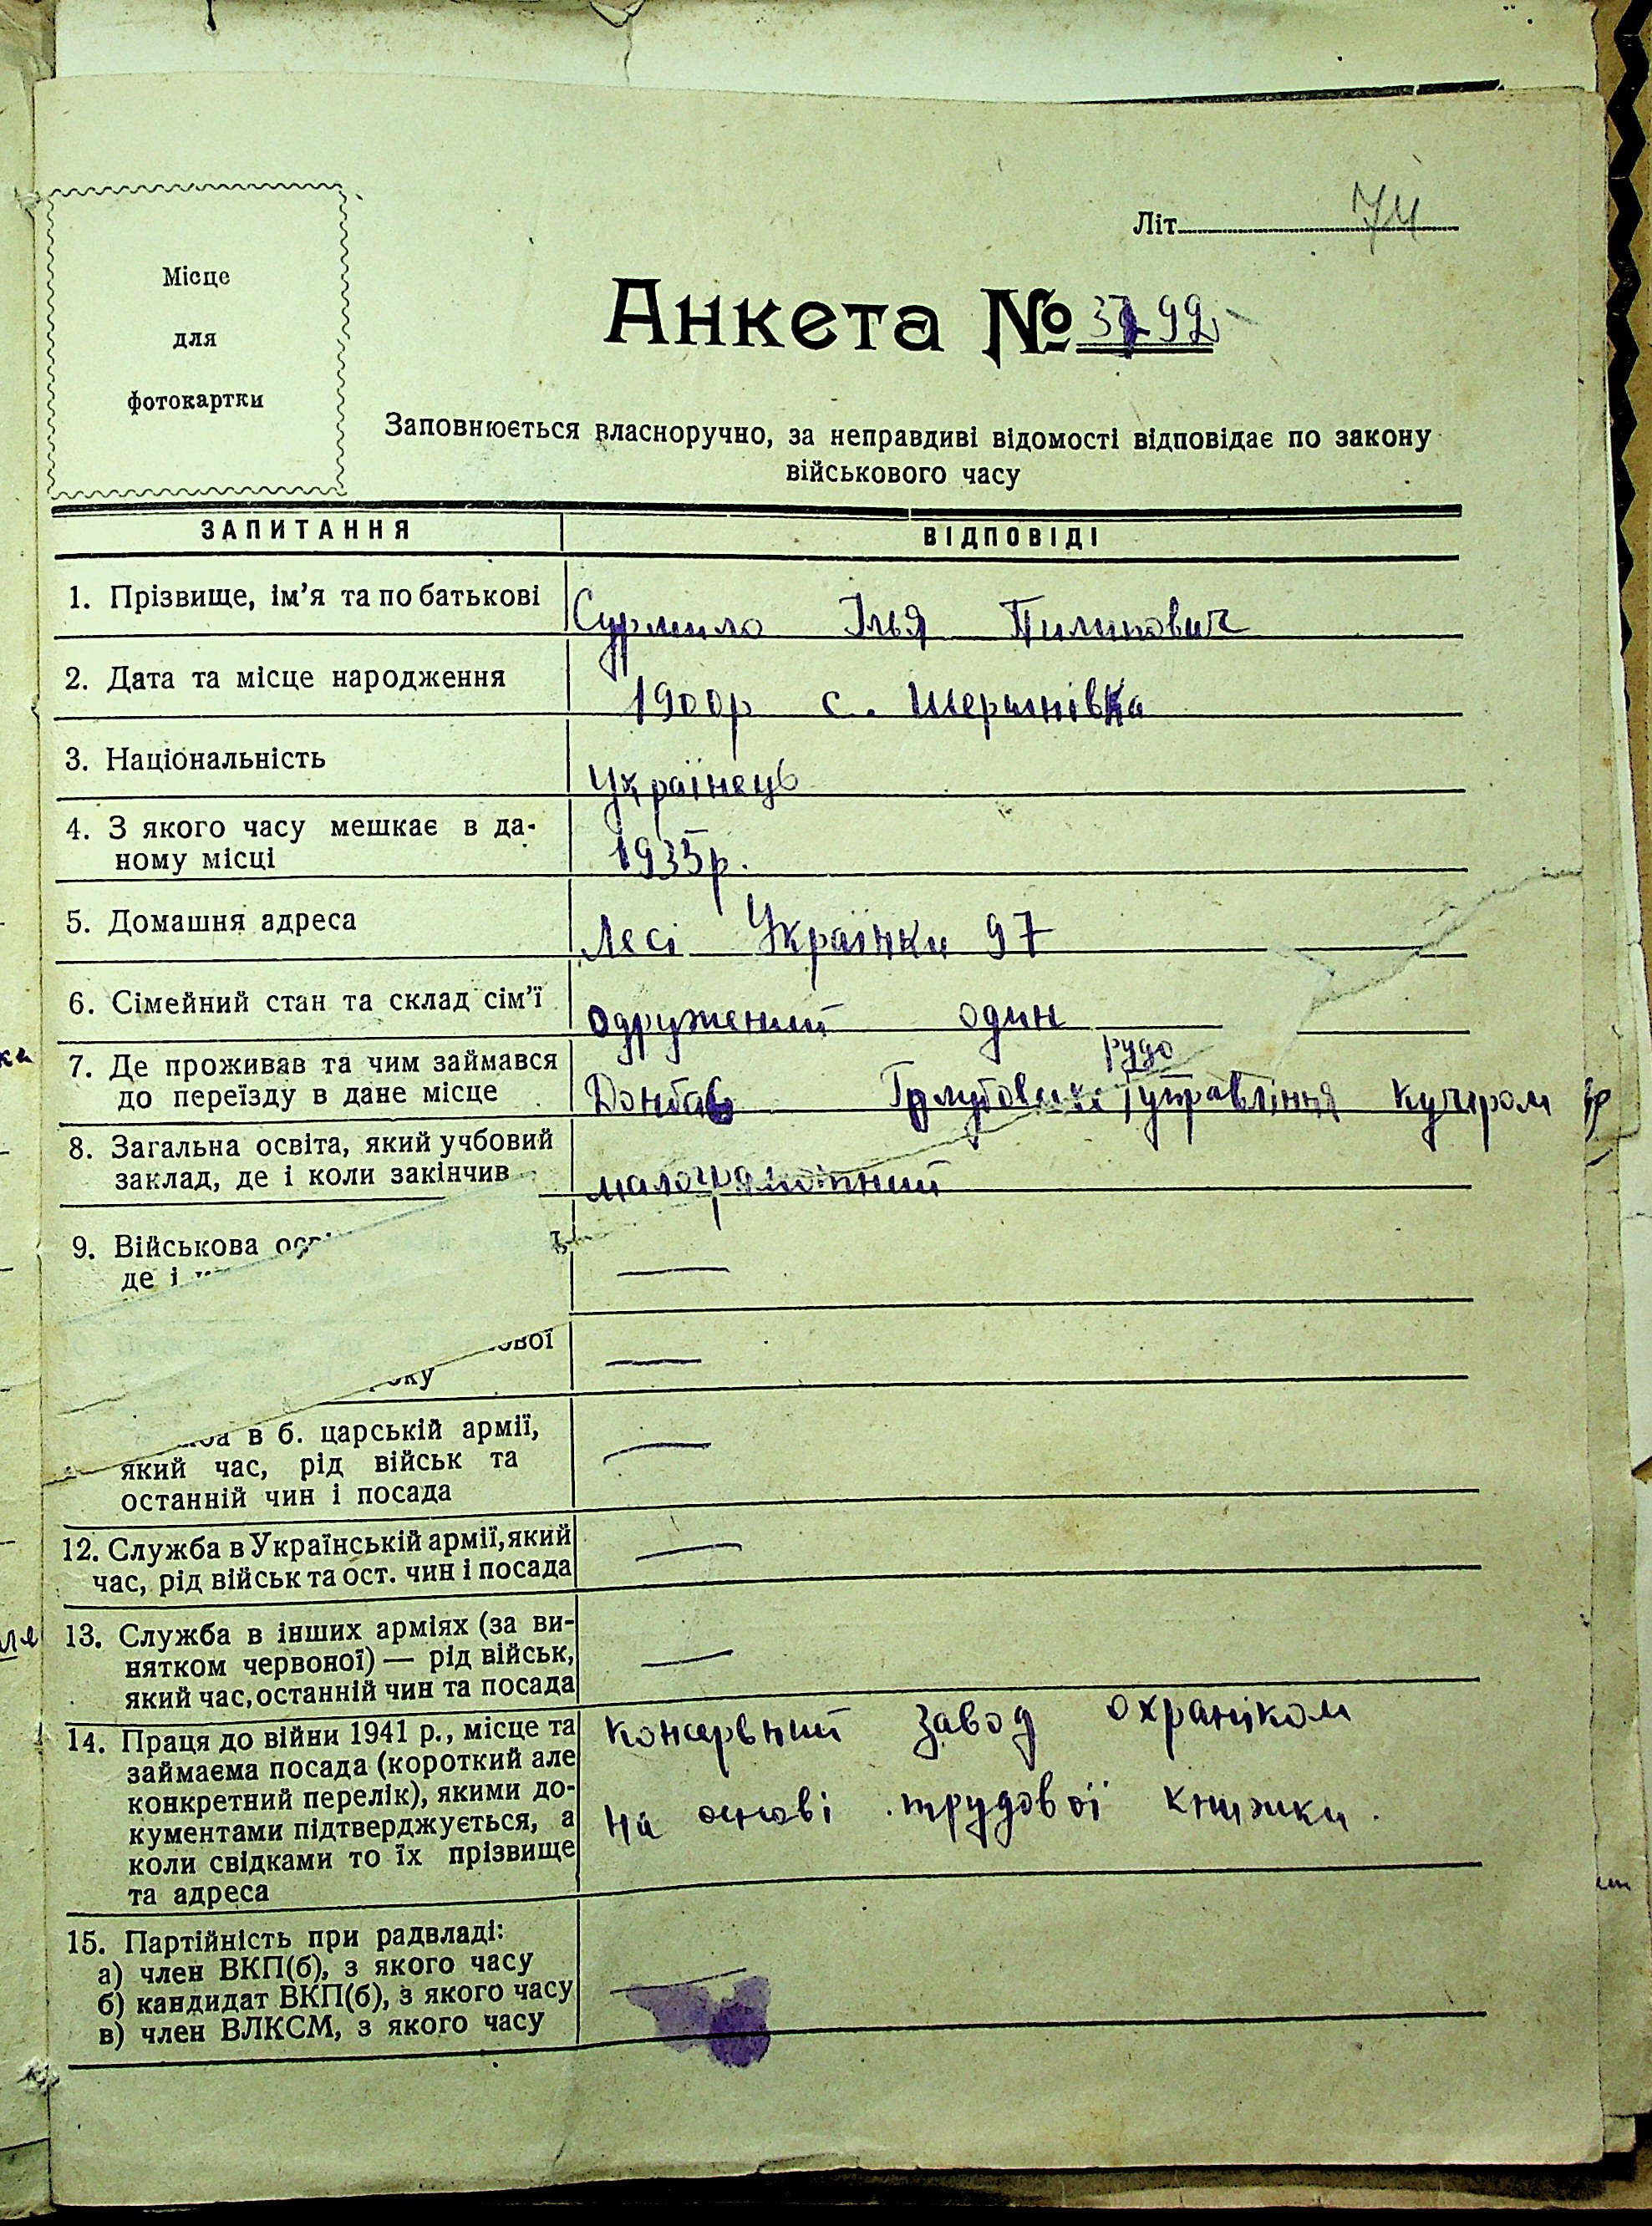 Літ. 74
Місце
для
фотокартки
Анкета № 3799
Заповнюється власноручно, за неправдиві відомості відповідає по закону
військового часу
ЗАПИТАННЯ ВІДПОВІДІ
1. Прізвище, ім'я та по батькові Сурмило Ілья Пилипович
2. Дата та місце народження 1900р с. Шершнівка
3. Національність Українець
4. З якого часу мешкає в да-
ному місці 1935р.
5. Домашня адреса Лесі Українки 97
6. Сімейний стан та склад сім'ї одружений один
7. Де проживав та чим займався
до переїзду в дане місце Донбас рудо управління кучером
8. Загальна освіта, який учбовий
заклад, де і коли закінчив малограмотний
9. Військова
де і
ової
року
в б. царській армії, —
який час, рід військ та
останній чин і посада
12. Служба в Українській армії, який —
час, рід військ та ост. чин і посада
13. Служба в інших арміях (за ви-
нятком червоної) — рід військ, —
який час, останній чин та посада
14. Праця до війни 1941 р., місце та консервний завод охраніком
займаєма посада (короткий але
конкретний перелік), якими до-
кументами підтверджується, а на основі трудової книжки.
коли свідками то їх прізвище
та адреса
15. Партійність при радвладі:
а) член ВКП(б), з якого часу
б) кандидат ВКП(б), з якого часу —
в) член ВЛКСМ, з якого часу